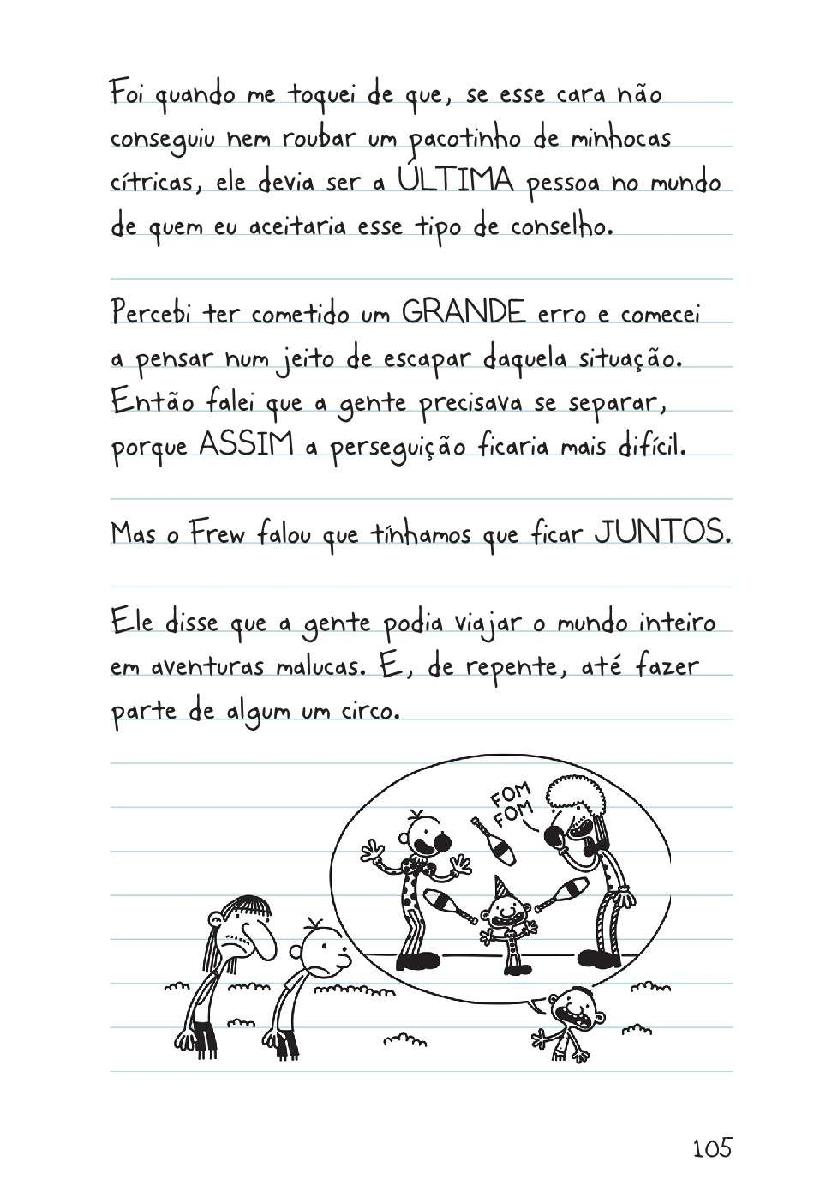 Foi quando me toquei de que, se esse cara não
conseguiu nem roubar um pacotinho de minhocas
cítricas, ele devia ser a ÚLTIMA pessoa no mundo
de quem eu aceitaria esse tipo de conselho.
Percebi ter cometido um GRANDE erro e comecei
a pensar num jeito de escapar daquela situação.
Então falei que a gente precisava se separar,
porque ASSIM a perseguição ficaria mais difícil.
Mas o Frew falou que tínhamos que ficar JUNTOS.
Ele disse que a gente podia viajar o mundo inteiro
em aventuras malucas. E, de repente, até fazer
parte de algum um circo.
FOM
FOM
105